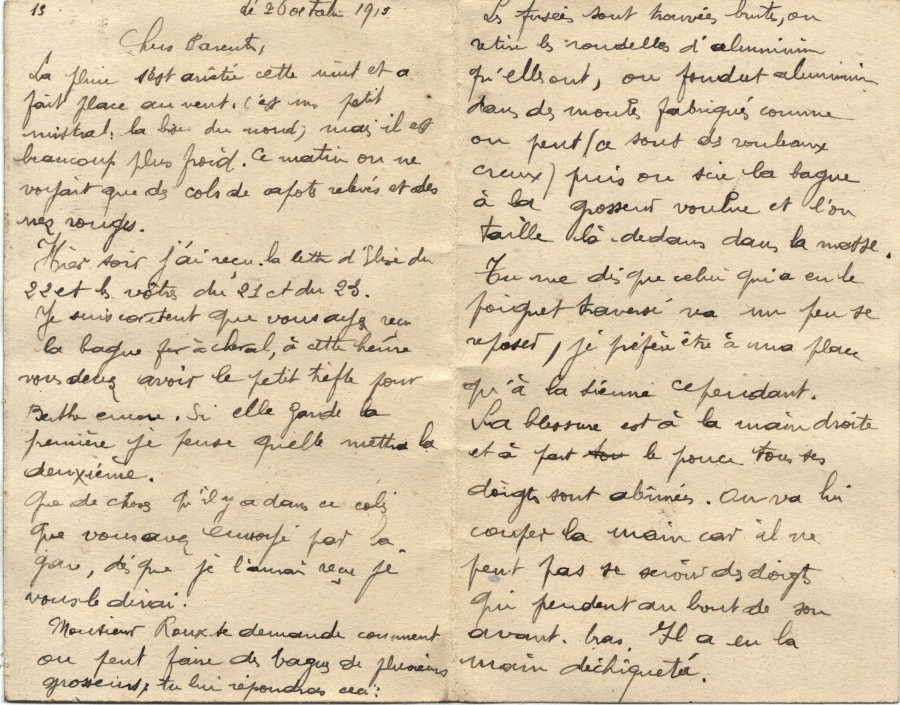 13 le 26 octobre 1915
Chers Parents,
La pluie s'est arrêtée cette nuit et a
fait place au vent. C'est un petit
mistral: la bise du nord; mais il est
beaucoup plus froid. Ce matin on ne
voyait que des cols de capots relevés et des
nez rouges.
Hier soir j'ai reçu la lettre d'Elise du
22 et les vôtres du 21 et du 23.
Je suis content que vous ayez reçu
la bague fer à cheval, à cette heure
vous devez avoir le petit trèfle pour
Berthe encore. Si elle garde la
première je pense qu'elle mettra la
deuxième.
Que de choses qu'il y a dans ce colis
que vous avez envoyé par la
gare, dès que je l'aurai reçu je
vous le dirai.
Monsieur Roux te demande comment
on peut faire des bagues de plusieurs
grosseurs; tu lui répondras ceci:
Les fusées sont trouvées brutes, on
retire les rondelles d'aluminium
qu'elles ont, on fond cet aluminium
dans des moules fabriqués comme
on peut (ce sont des rouleaux
creux) puis on scie la bague
à la grosseur voulue et l'on
taille là-dedans dans la masse.
Tu me dis que celui qui a eu le
poignet traversé va un peu se
reposer, je préfère être à ma place
qu'à la sienne cependant.
Sa blessure est à la main droite
et à part le pouce tous ses
doigts sont abîmés. On va lui
couper la main car il ne
peut pas se servir des doigts
qui pendent au bout de son
avant-bras. Il a eu la
main déchiquetée.